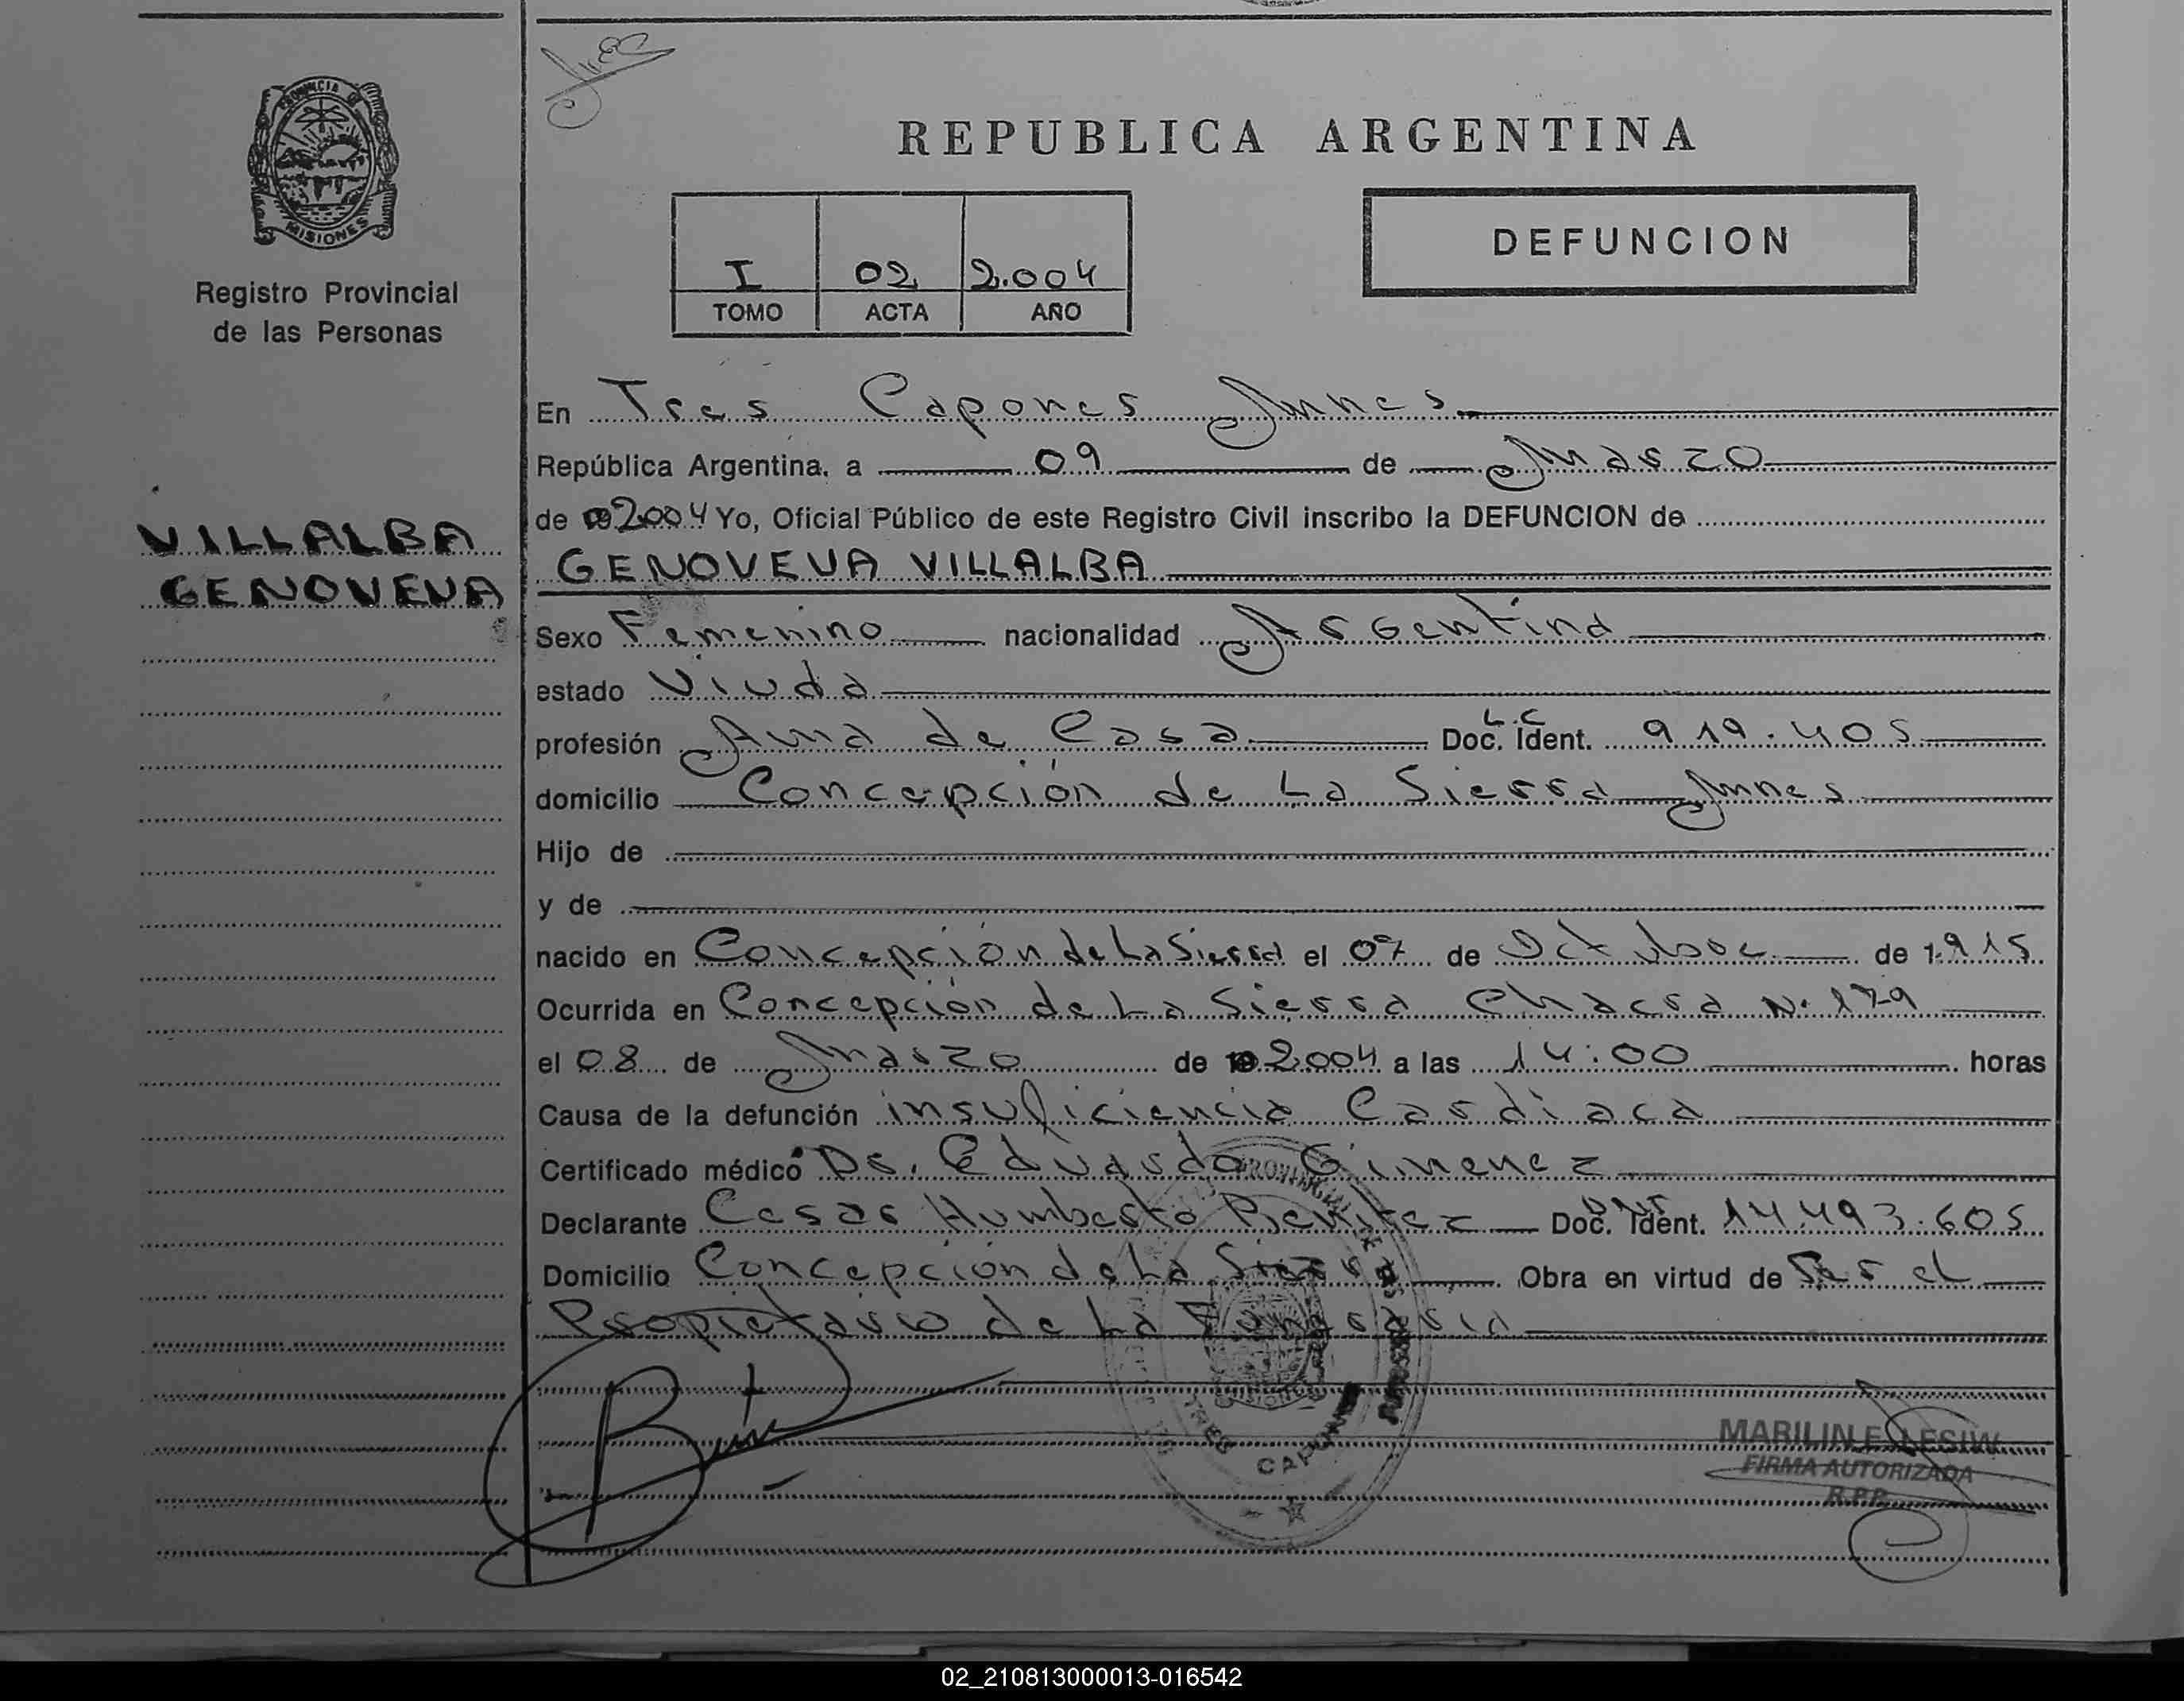 PROVINCIA DE
MISIONES
Registro Provincial
de las Personas
VILLALBA
GENOVEVA
REPUBLICA ARGENTINA
I 02 2.004
TOMO ACTA AÑO
DEFUNCION
En Tres Capones Mnes
República Argentina, a 09 de Marzo
de 2004 Yo, Oficial Público de este Registro Civil inscribo la DEFUNCION de
GENOVEVA VILLALBA
Sexo Femenino nacionalidad Argentina
estado Viuda
profesión Ama de Casa L.C Doc. Ident. 919.405
domicilio Concepción de La Sierra Mnes
Hijo de
y de
nacido en Concepción de La Sierra el 07 de Octubre de 1.915
Ocurrida en Concepción de La Sierra Chacra N. 179
el 08 de Marzo de 2004 a las 14:00 horas
Causa de la defunción insuficiencia Cardiaca
Certificado médico Dr. Eduardo Gimenez
Declarante Cesar Humberto Benitez DNI Doc. Ident. 14.493.605
Domicilio Concepción de La Sierra Obra en virtud de Ser el
Propietario de La Funeraria
TRES CAPONES
MARILIN E. LESIW
FIRMA AUTORIZADA
R.P.P.
02_210813000013-016542